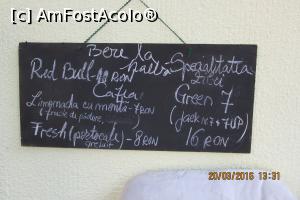 [c] AmFostAcolo®
Bere la halbă
Red Bull - RON
Cafea
Limonada cu menta - 7RON
(fructe de pădure,
Fresh (portocale) - 8RON
grefuit
Specialitatea
Zilei
Green 7
(Jack +7UP)
16 RON
20/03/2016 13:31